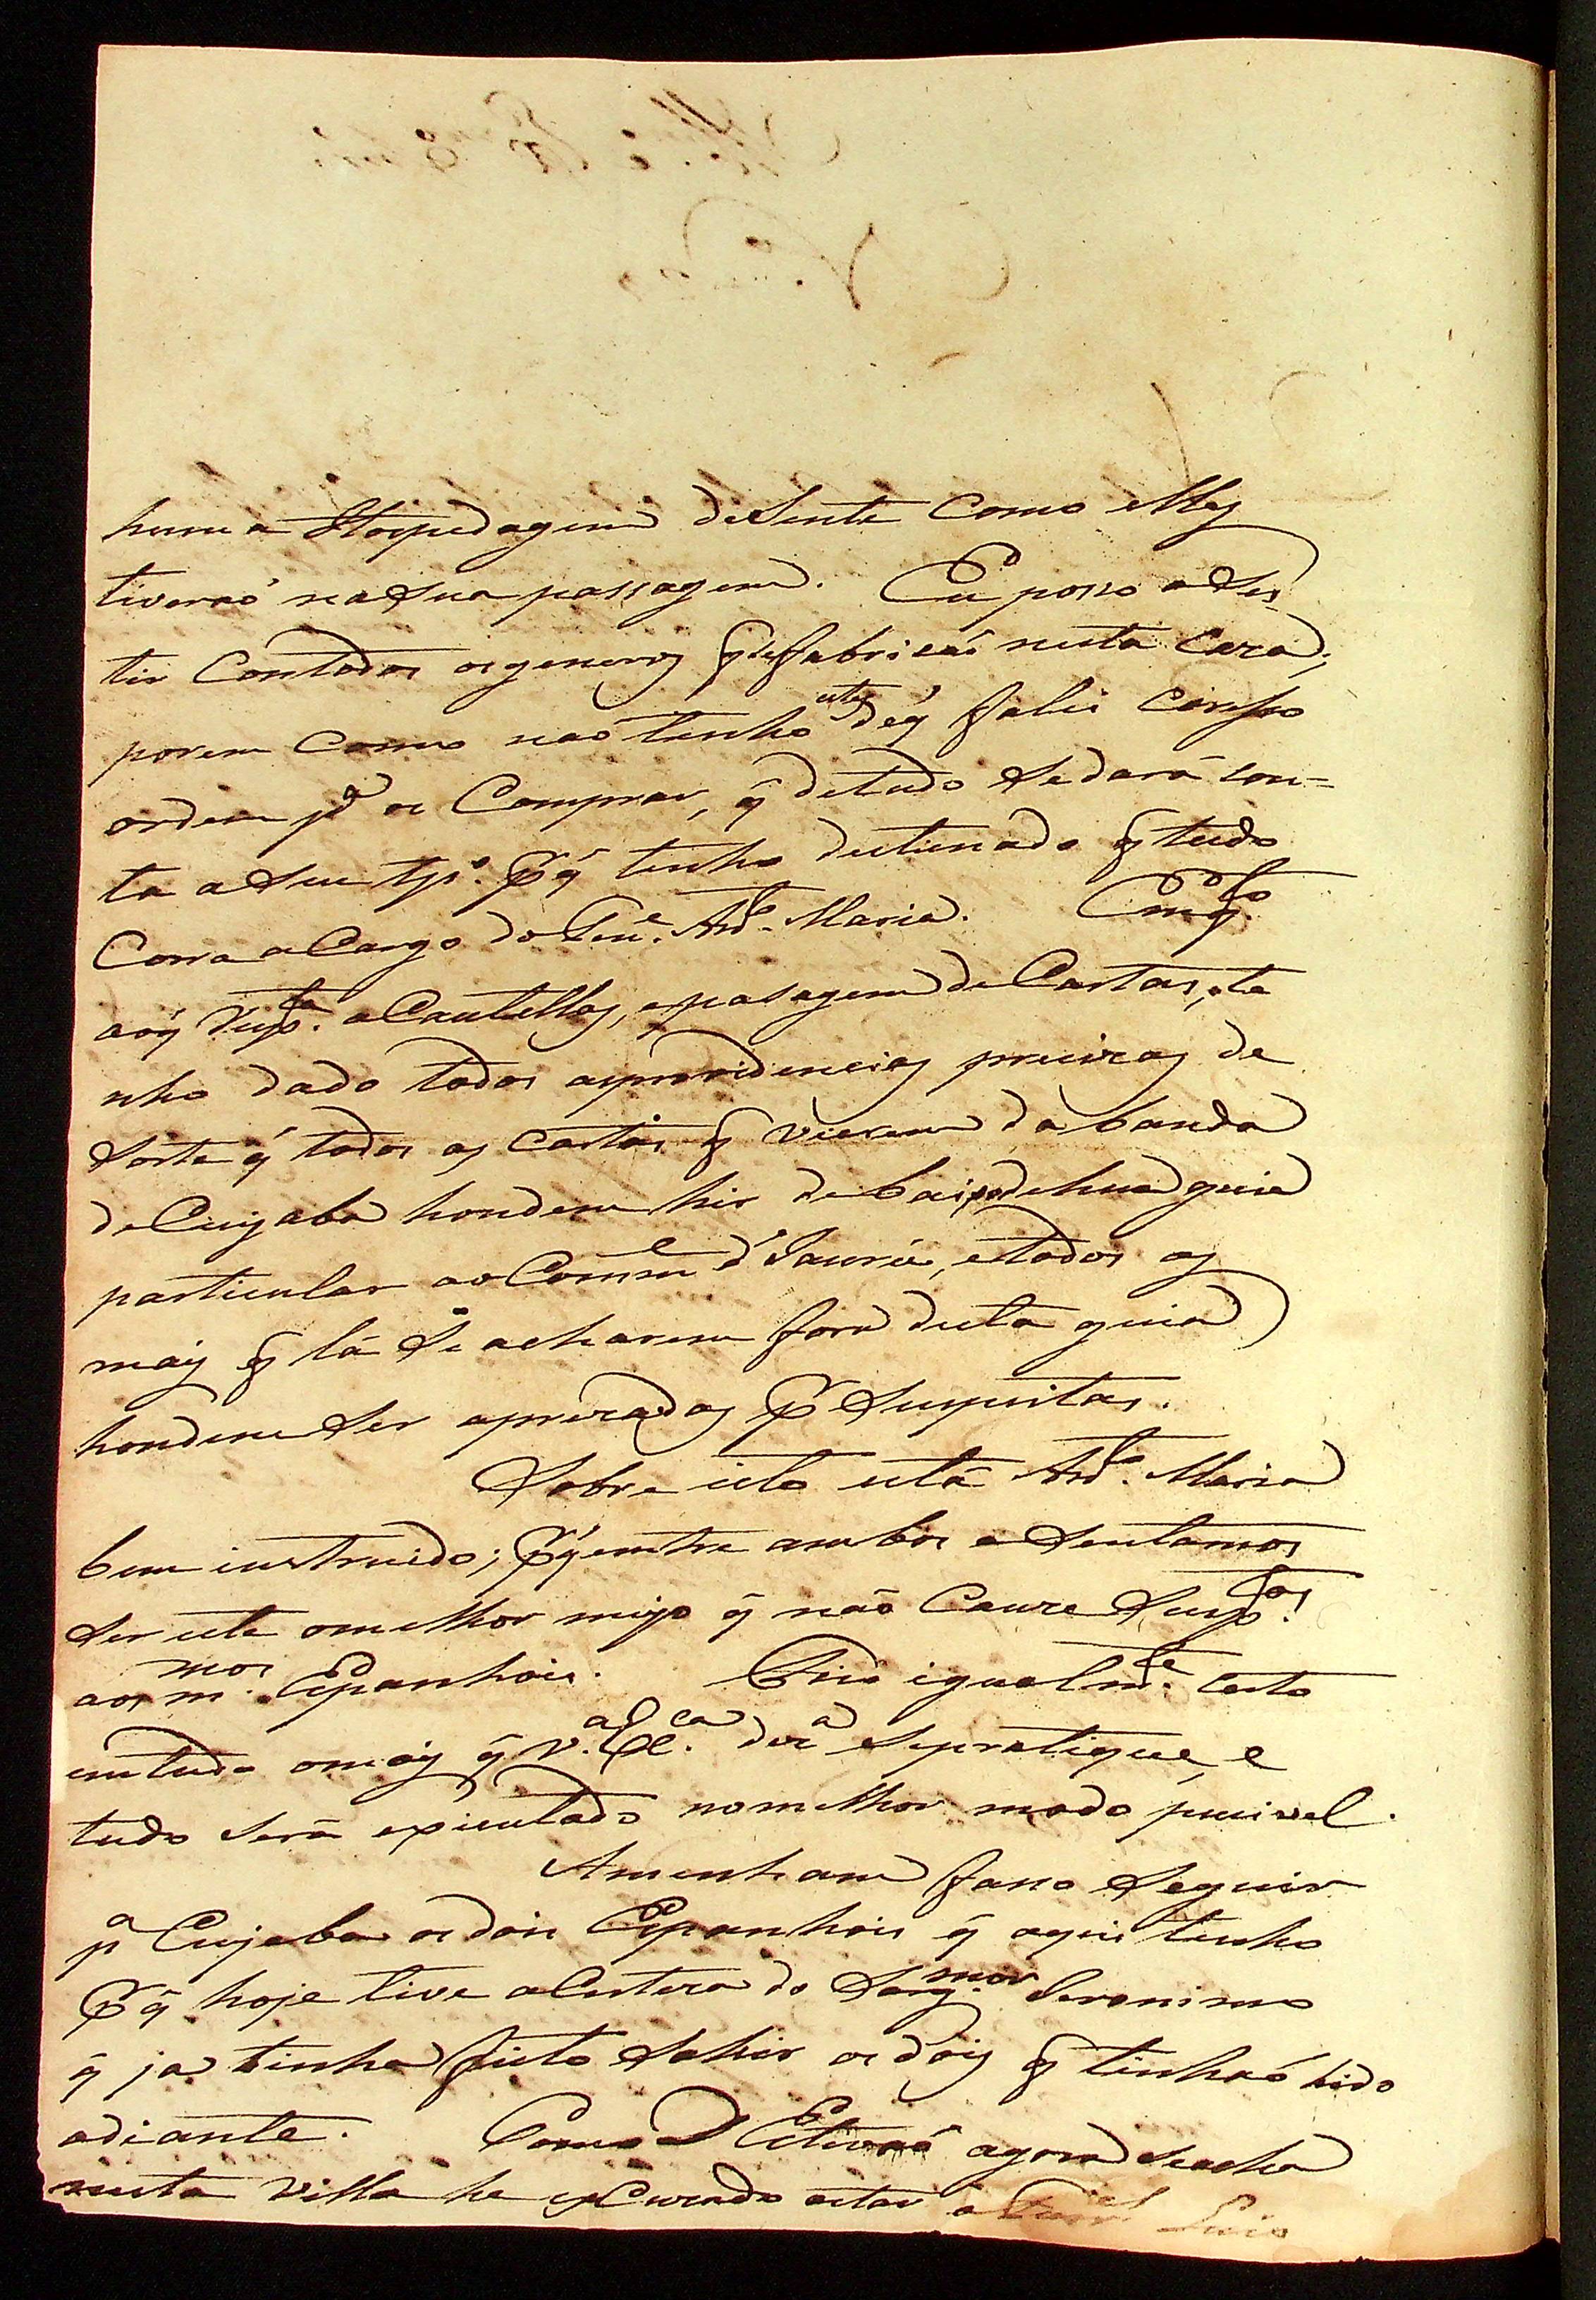 huma Hospedagem desente como elles
tiveraõ na sua passagem. Eu posso asis
tir com todos os generos q̃ se fabricaõ nesta caza;
porem como naõ tenho athe dég̃ falei
ordem pª os Comprar, q̃ detudo se dará con=
ta a seu tpº. P q̃ tenho destinado q̃ tudo
Corra a Cargo do Tenᵉ. Anᵗᵒ. Maria. Emqᵗᵒ
aoq̃ Respᵗᵃ. a Cautellas, e pasagem de Cartas, te
nho dado todas as providencias precizas de
sorte q̃ todas as cartas q̃ vierem da banda
de Cuyaba hondem hir debaixo dehua guia
particular ao Comᵉ d'Jaurú, e todas as
mais q̃ lá se acharem fora desta guia
hondem ser aprezadas P suspeitas.
Sobre isto está Anᵗᵒ. Maria
bem instruido; P q̃ entre ambos asentamos
ser este omelhor mejo q̃ naõ Cauze suspᵗᵃˢ
aos mᵐᵒˢ. Espanhois. Fico igualmᵗᵉ. certo
emtudo omais q̃ V.ª Exᶜᵃ. diz se pratique, e
tudo será exzecutado nomelhor modo pucivel.
Amenham faço seguir
pª Cujaba os dois Espanhois q̃ aqui tenho
P q̃ hoje tive aCerteza do Sargᵐᵒʳ Jeronimo
q̃ ja tinha feito sahir os dois q̃ tinhaõ hido
adiante. Como D Estevaõ agora seacha
nesta Villa he excuzado estar o Luis